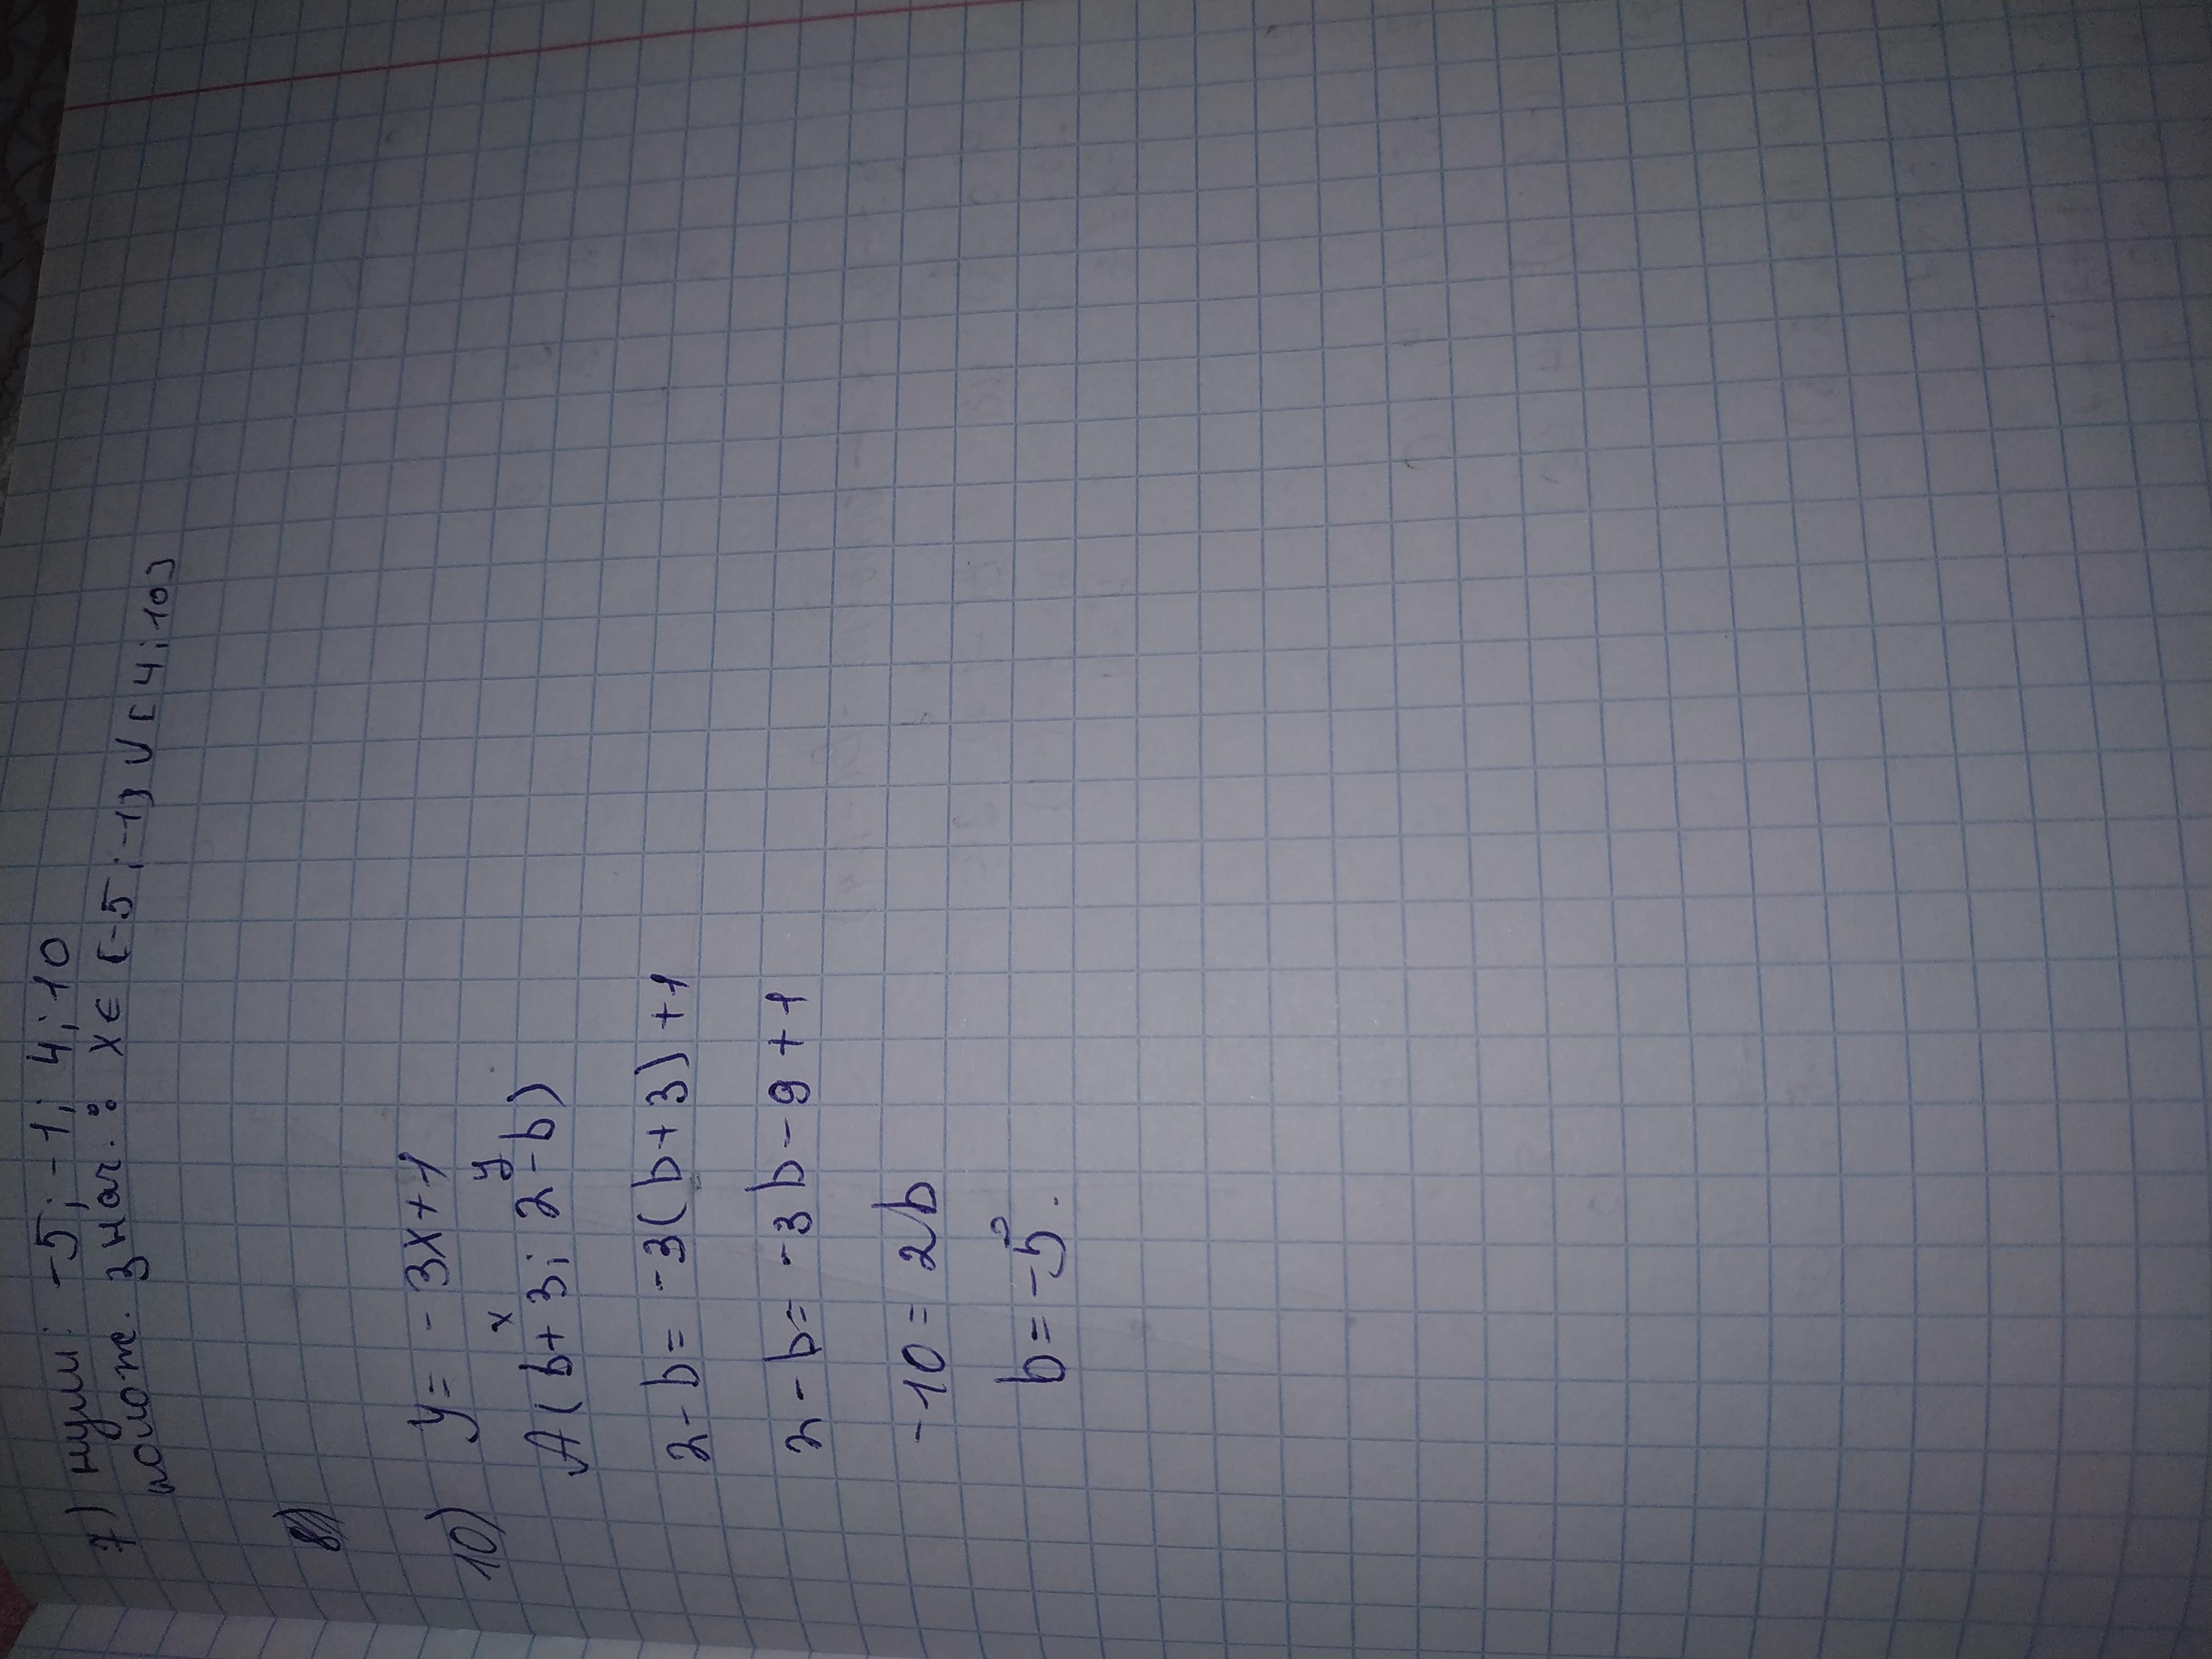 7) нули: -5; -1; 4; 10
полож. знач.: x∈[-5;-1]∪[4;10]
8)
10) y = -3x+1
x y
A(b+3; 2-b)
2-b = -3(b+3)+1
2-b = -3b-9+1
-10 = 2b
b = -5.